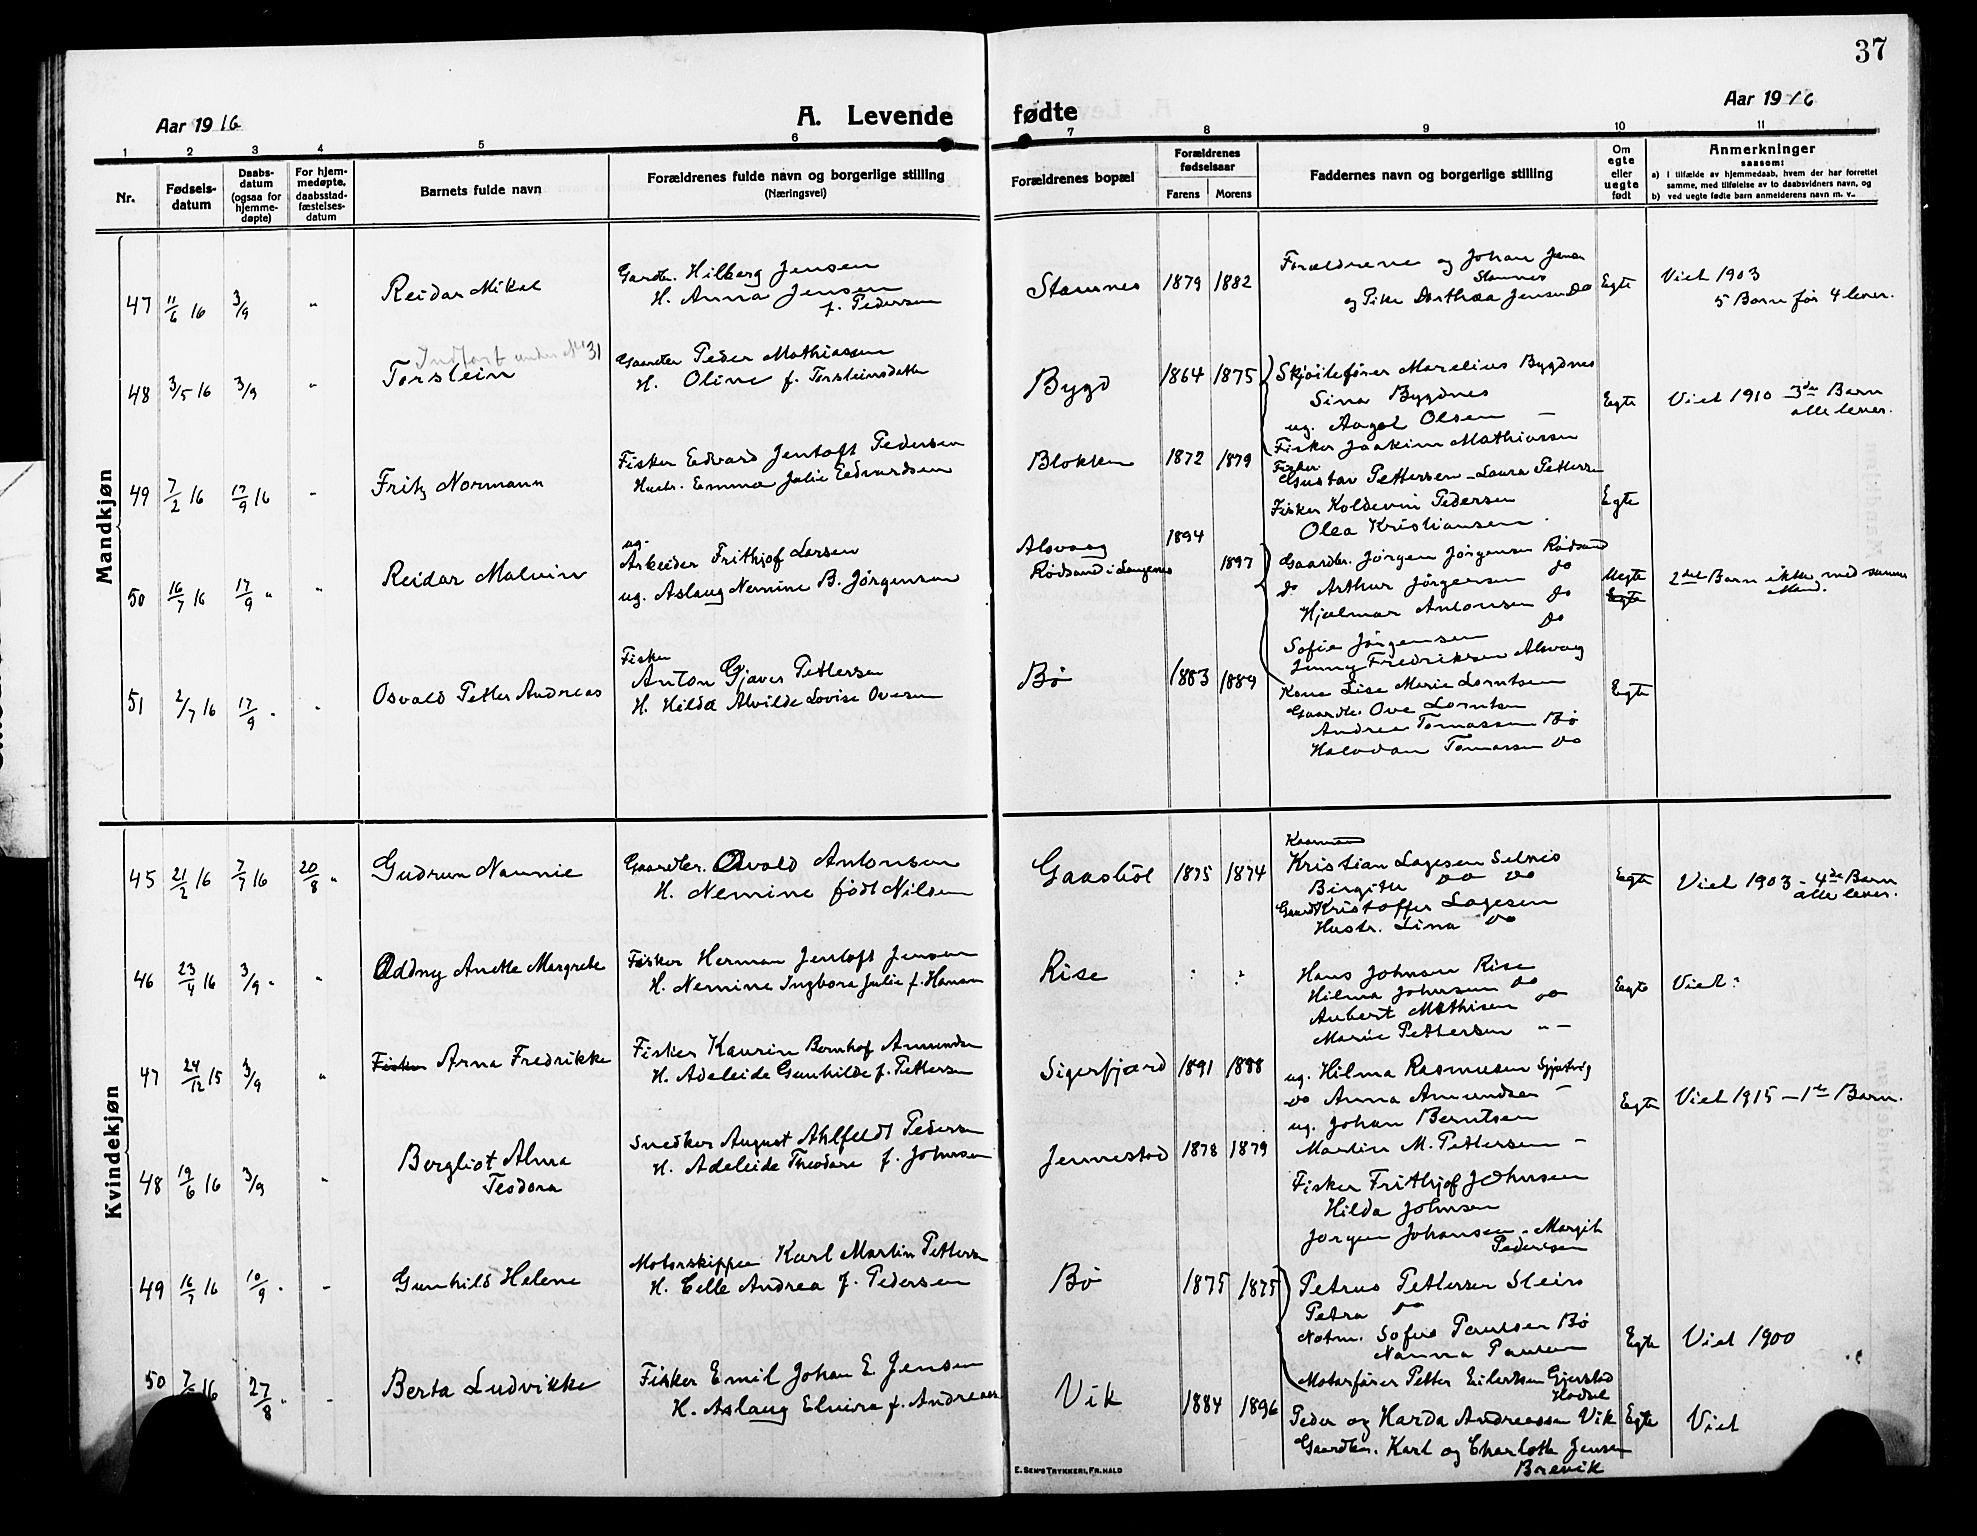 37
Aar 1916
A. Levende
fødte
Aar 1916
1 2 3 4 5 6 7 8 9 10 11
Nr.
Fødsels-
datum
Daabs-
datum
(ogsaa for
hjemme-
døpte)
For hjem-
medøpte,
daabsstad-
fæstelses-
datum
Barnets fulde navn
Forældrenes fulde navn og borgerlige stilling
(Næringsvei)
Forældrenes bopæl
Forældrenes
fødselsaar
Farens Morens
Faddernes navn og borgerlige stilling
Om
egte
eller
uegte
født
Anmerkninger
saasom:
a) i tilfælde av hjemmedaab, hvem der har forrettet
samme, med tilføielse av to daabsvidners navn, og
b) ved uegte fødte barn anmelderens navn m. v..
Mandkjøn
47 11/6 16 3/9 " Reidar Mikal
Gardbr. Hilberg Jensen
H. Anna Jensen
f. Pedersen
Stamnes 1879 1882
Forældrene og Johan Jensen
Stamnes
og Pike Dorthæa Jensen do
Egte
Viet 1903
5 Barn før 4 lever.
Indført under No 31
48 3/5 16 3/9 " Torstein
Gaardbr Peder Mathiassen
H. Oline f. Torsteinsdatter
Bygd 1864 1875
Skjøitefører Marelius Bygdnes
Sina Bygdnes
ug. Aagot Olsen –
Fisker Joakim Mathiassen
Egte
Viet 1910 – 3de Barn
alle lever.
49 7/2 16 17/9 16 " Fritz Normann
Fisker Edvard Jentoft Pedersen
Hustr. Emma Julie Edvardsen
Blokken 1872 1879
Fisker
Gustav Pettersen – Laura Pettersen
Fisker Koldevin Pedersen
Olea Kristiansen
Egte
50 16/7 16 17/9 " " Reidar Malvin
ug.
Arbeider Frithjof Larsen
ug. Aslaug Nemine B. Jørgensen
Alsvaag
Rødsand i Langenes
1894 1897
Gaardbr. Jørgen Jørgensen Rødsand
do Arthur Jørgensen do
Hjalmar Antonsen do
Sofie Jørgensen do
Jenny Fredriksen Alsvaag
Uegte
Egte
2det Barn ikke med samme
Mand.
51 2/7 16 17/9 " " Osvald Petter Andreas
Fisker
Anton Gjæver Pettersen
H. Hilda Alvilde Lovise Ovesen
Bø 1883 1889
Kone Lise Marie Lorntsen
Gaardbr. Ove Lorntsen
Andrea Tomassen Bø
Halvdan Tomassen do
Egte
Kvindekjøn
45 21/2 16 7/7 16 20/8 " Gudrun Nannie
Gaardbr. Osvald Antonsen
H. Nemine født Nilsen
Gaastiøl 1875 1874
Kristian Lagesen Selnes
Birgitte do do
Gaardb Kristoffer Lagesen
Hustr. Lina do
Egte
Viet 1903 – 4de Barn
alle lever.
46 23/4 16 3/9 " " Oddny Anette Margrete
Fisker Herman Jentoft Jensen
H. Nemine Ingbora Julie f. Hansen
Rise : ?
Hans Johnsen Rise
Hilma Johnsen do
Aubert Mathisen do
Marie Pettersen " –
Egte
Viet ?
47 24/12 15 3/9 " Fisker Arna Fredrikke
Fisker Kaurin Bernhof Amundsen
H. Adeleide Gunhilde f. Pettersen
Sigerfjord 1891 1888
ug. Hilma Rasmusen
do Anna Amundsen –
ug. Johan Berntsen
Martin M. Pettersen –
Egte
Viet 1915 – 1ste Barn.
48 19/6 16 3/9 " Bergliot Alma
Teodora
Snedker August Ahlfeldt Pedersen
H. Adeleide Theodore f. Johnsen
Jennestad 1878 1879
Fisker Frithjof Johnsen
Hilda Johnsen
Jørgen Johansen – Margit
Pedersen
49 16/7 16 10/9 " " Gunhild Helene
Motorskipper Karl Martin Pettersen
H. Celle Andrea f. Pedersen
Bø 1875 1875
Petrus Pettersen Steiro
Petra do
Notm. Sofus Paulsen Bø
Nanna Paulsen
Motorfører Petter Eilertsen Gjerstad
Hadsel
Egte
Viet 1900
50 16 27/8 " " Berta Ludvikke
Fisker Emil Johan E. Jensen
H. Aslaug Elvira f. Andreassen
Vik 1884 1896
Peder og Harda Andreassen Vik
Gaardbr. Karl og Charlotte Jensen
Brevik
Egte
Viet
E. SEM'S TRYKKERI, FR.HALD